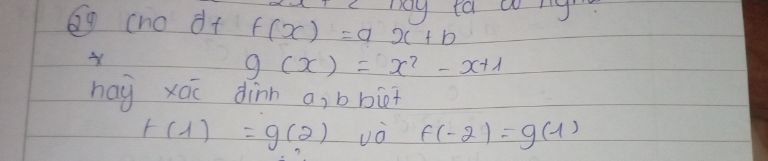 69 Cho đt f(x) = a x + b
* g(x) = x² - x + 1
hãy xác định a, b biết
f(1) = g(2) và f(-2) = g(1)